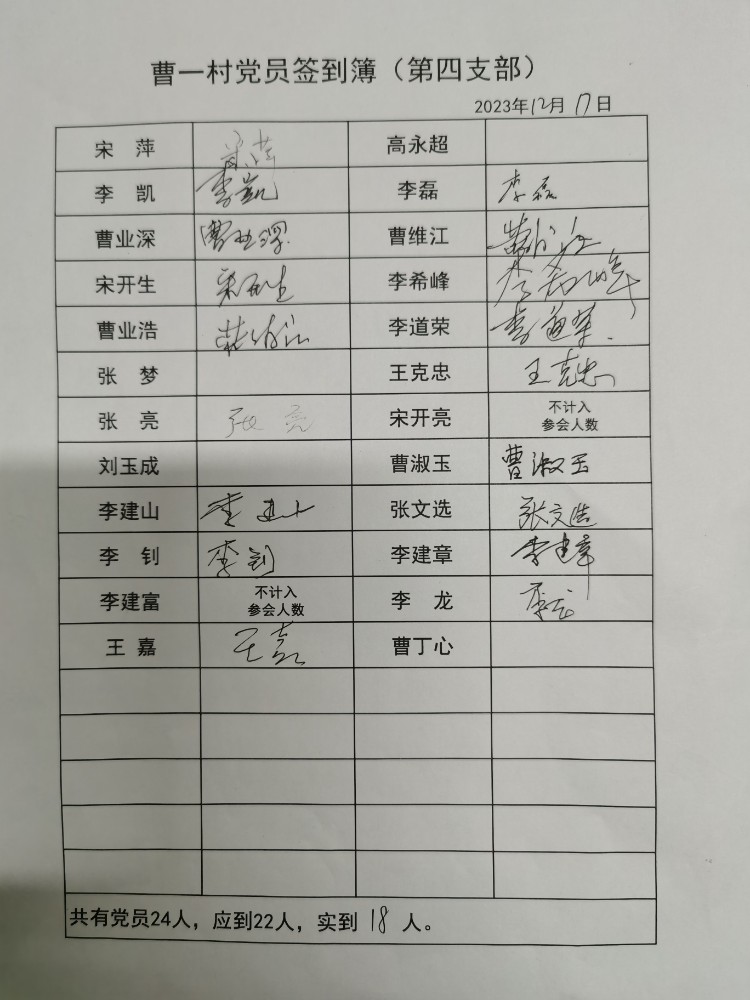 曹一村党员签到簿（第四支部）
2023年12月17日
宋 萍 宋萍 高永超
李 凯 李凯 李磊 李磊
曹业深 曹业深 曹维江
宋开生 宋开生 李希峰 李希峰
曹业浩 李道荣 李道荣
张 梦 王克忠 王克忠
张 亮 张亮 宋开亮 不计入
参会人数
刘玉成 曹淑玉 曹淑玉
李建山 李建山 张文选 张文选
李 钊 李钊 李建章 李建章
李建富 不计入 李 龙 李龙
参会人数
王 嘉 王嘉 曹丁心
共有党员24人，应到22人，实到 18 人。